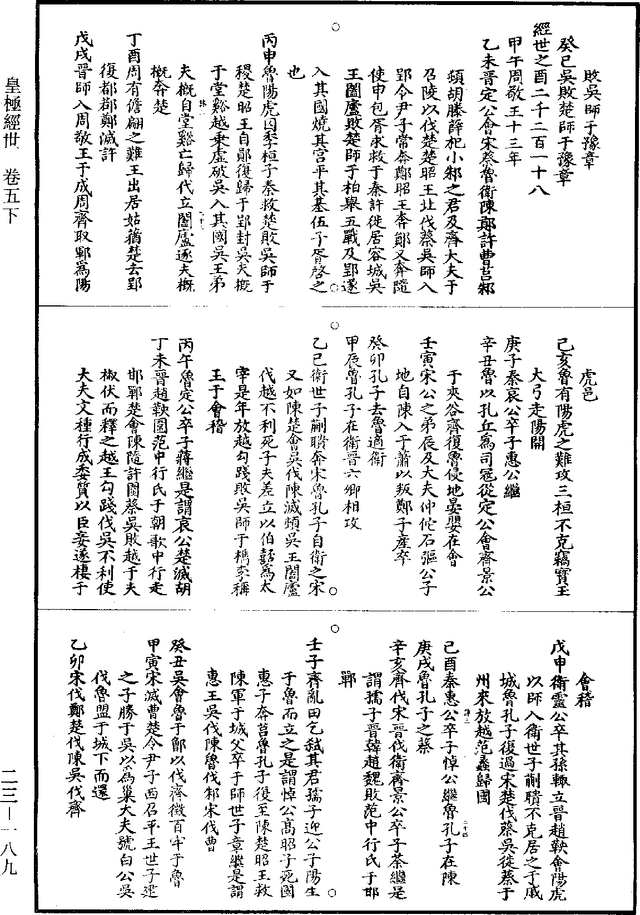 皇極經世　卷五下
敗吳師于豫章
癸巳吳敗楚師于豫章
經世之酉二千二百一十八
甲午周敬王十三年
乙未晉定公會宋蔡魯衛陳鄭許曹莒邾
頓胡滕薛杞小邾之君及齊大夫于
召陵以伐楚楚昭王北伐蔡吳師入
郢令尹子常奔鄭昭王奔鄖又奔隨
使申包胥求救于秦許徙居容城吳
王闔廬敗楚師于柏舉五戰及郢遂
入其國燒其宮平其墓伍子胥啓之
也
丙申魯陽虎囚季桓子秦救楚敗吳師于
稷楚昭王自鄖復歸于郢封吳夫概
于堂谿越乘虛破吳入其國吳王弟
夫概自堂谿亡歸代立闔廬逐夫概
概奔楚
丁酉周有儋翩之難王出居姑蕕楚去郢
復都鄀鄭滅許
戊戌晉師入周敬王于成周齊取鄆爲陽
虎邑
己亥魯有陽虎之難攻三桓不克竊寶玉
大弓走陽關
庚子秦哀公卒子惠公繼
辛丑魯以孔丘爲司寇從定公會齊景公
于夾谷齊復魯侵地晏嬰在會
壬寅宋公之弟辰及大夫仲佗石彄公子
地自陳入于蕭以叛鄭子產卒
癸卯孔子去魯適衛
甲辰魯孔子在衛晉六卿相攻
乙巳衛世子蒯聵奔宋魯孔子自衛之宋
又如陳楚會吳伐陳滅頓吳王闔廬
伐越不利死子夫差立以伯嚭爲太
宰是年於越勾踐敗吳師于檇李稱
王于會稽
丙午魯定公卒子蔣繼是謂哀公楚滅胡
丁未晉趙鞅圍范中行氏于朝歌中行走
邯鄲楚會陳隨許圍蔡吳敗越于夫
椒伏而釋之越王勾踐伐吳不利使
大夫文種行成委質以臣妾遂棲于
會稽
戊申衛靈公卒其孫輒立晉趙鞅會陽虎
以師入衛世子蒯聵不克居之于戚
城魯孔子復過宋楚伐蔡吳徙蔡于
州來放越范蠡歸國
己酉秦惠公卒子悼公繼魯孔子在陳
庚戌魯孔子之蔡
辛亥齊伐宋晉伐衛齊景公卒子荼繼是
謂孺子晉韓趙魏敗范中行氏于邯
鄲
壬子齊亂田乞弒其君孺子迎公子陽生
于魯而立之是謂悼公高昭子死國
惠子奔莒魯孔子復至陳楚昭王救
陳軍于城父卒于師世子章繼是謂
惠王吳伐陳魯伐邾宋伐曹
癸丑吳會魯于鄫以伐齊徵百牢于魯
甲寅宋滅曹楚令尹子西召平王世子建
之子勝于吳以爲巢大夫號白公吳
伐魯盟于城下而還
乙卯宋伐鄭楚伐陳吳伐齊
二三—一八九